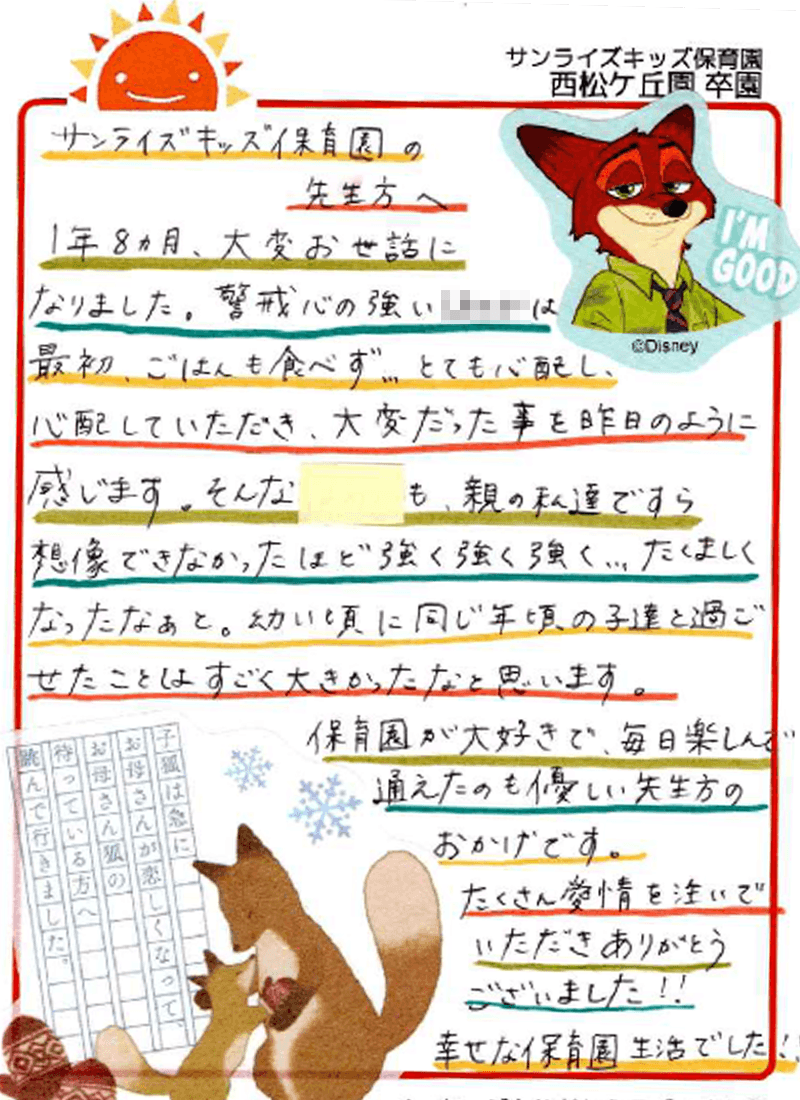 サンライズキッズ保育園
西松ケ丘園 卒園
サンライズキッズ保育園の
先生方へ
1年8ヵ月、大変お世話に
なりました。警戒心の強い は
最初、ごはんも食べず…とても心配し、
心配していただき、大変だった事を昨日のように
感じます。そんな も、親の私達ですら
想像できなかったほど強く強く強く…たくましく
なったなぁと。幼い頃に同じ年頃の子達と過ご
せたことはすごく大きかったなと思います。
保育園が大好きで、毎日楽しんで
通えたのも優しい先生方の
おかげです。
たくさん愛情を注いで
いただきありがとう
ございました!!
幸せな保育園生活でした!!
I'M
GOOD
©Disney
子狐は急に
お母さんが恋しくなって、
お母さん狐の
待っている方へ
跳んで行きました。